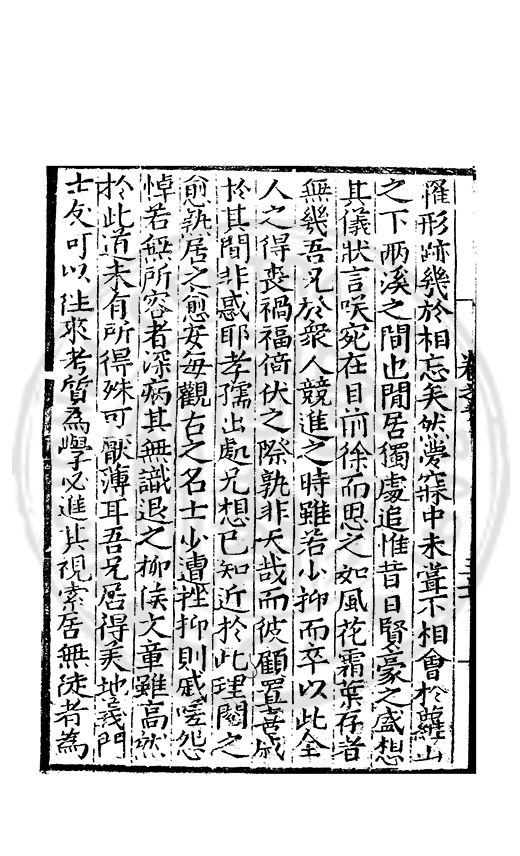 羅形跡幾於相忘矣然夢寐中未嘗不相會於蘿山
之下兩溪之間也閒居獨處追惟昔日賢豪之盛想
其儀狀言咲宛在目前徐而思之如風花霜葉存者
無幾吾兄於衆人競進之時雖若少抑而卒以此全
人之得喪禍福倚伏之際孰非天哉而彼顧置喜戚
於其間非惑耶孝孺出處兄想已知近於此理閱之
愈熟居之愈安每觀古之名士少遭挫抑則戚嗟怨
悼若無所容者深病其無識退之柳侯文章雖高然
於此道未有所得殊可厭薄耳吾兄居得美地義門
士友可以往來考質為學必進其視索居無徒者為